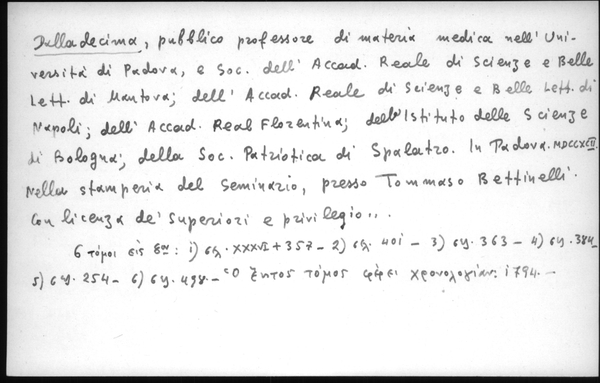 Dalladecima, pubblico professore di materia medica nell' Uni-
versità di Padova, e Soc. dell' Accad. Reale di Scienze e Belle
Lett. di Mantova; dell' Accad. Reale di Scienze e Belle Lett. di
Napoli; dell' Accad. Real Florentina; dell'Istituto delle Scienze
di Bologna; della Soc. Patriotica di Spalatro. In Padova. MDCCXCIII.
Nella stamperia del Seminario, presso Tommaso Bettinelli.
Con licenza de' Superiori e privilegio...
6 τόμοι εἰς 8ον: 1) σχ. XXXVI + 357 - 2) σχ. 401 - 3) σχ. 363 - 4) σχ. 384 -
5) σχ. 254 - 6) σχ. 498. - Ὁ ἕκτος τόμος φέρει χρονολογίαν: 1794. -